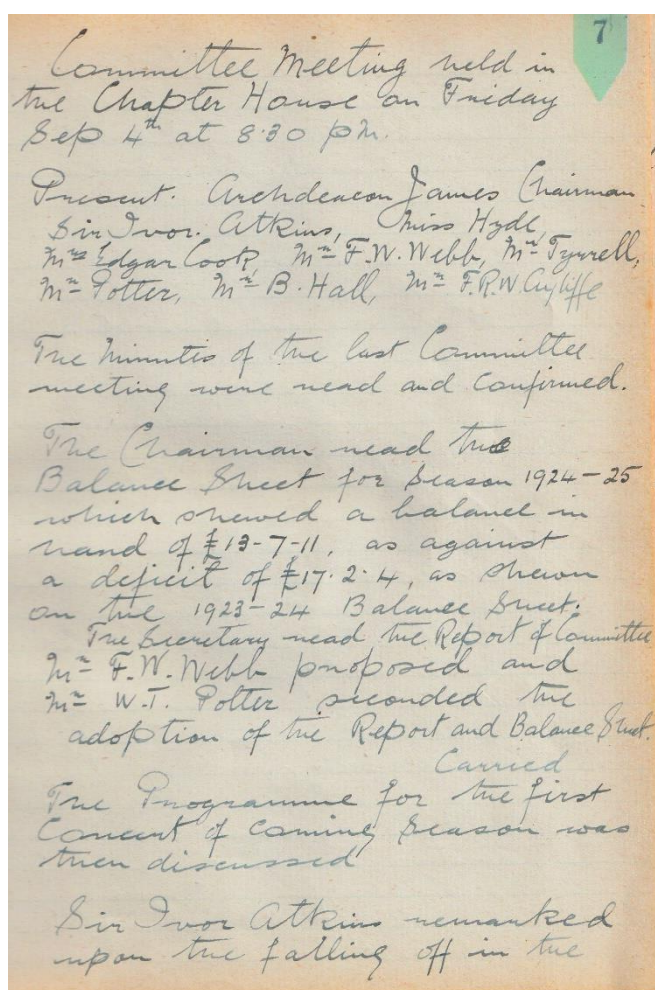 7
Committee Meeting held in
the Chapter House on Friday
Sep 4th at 8.30 pm.
Present. Archdeacon James Chairman
Sir Ivor. Atkins, Miss Hyde,
Mrs Edgar Cook, Mr F.W. Webb, Mr Tyrrell,
Mr Potter, Mr B. Hall, Mr F.R.W. Ayliffe
The Minutes of the last Committee
meeting were read and confirmed.
The Chairman read the
Balance Sheet for Season 1924-25
which shewed a balance in
hand of £13-7-11, as against
a deficit of £17.2.4, as shewn
on the 1923-24 Balance Sheet.
The Secretary read the Report of Committee
Mr F.W. Webb proposed and
Mr W.T. Potter seconded the
adoption of the Report and Balance Sheet.
Carried
The Programme for the first
Concert of coming Season was
then discussed
Sir Ivor Atkins remarked
upon the falling off in the